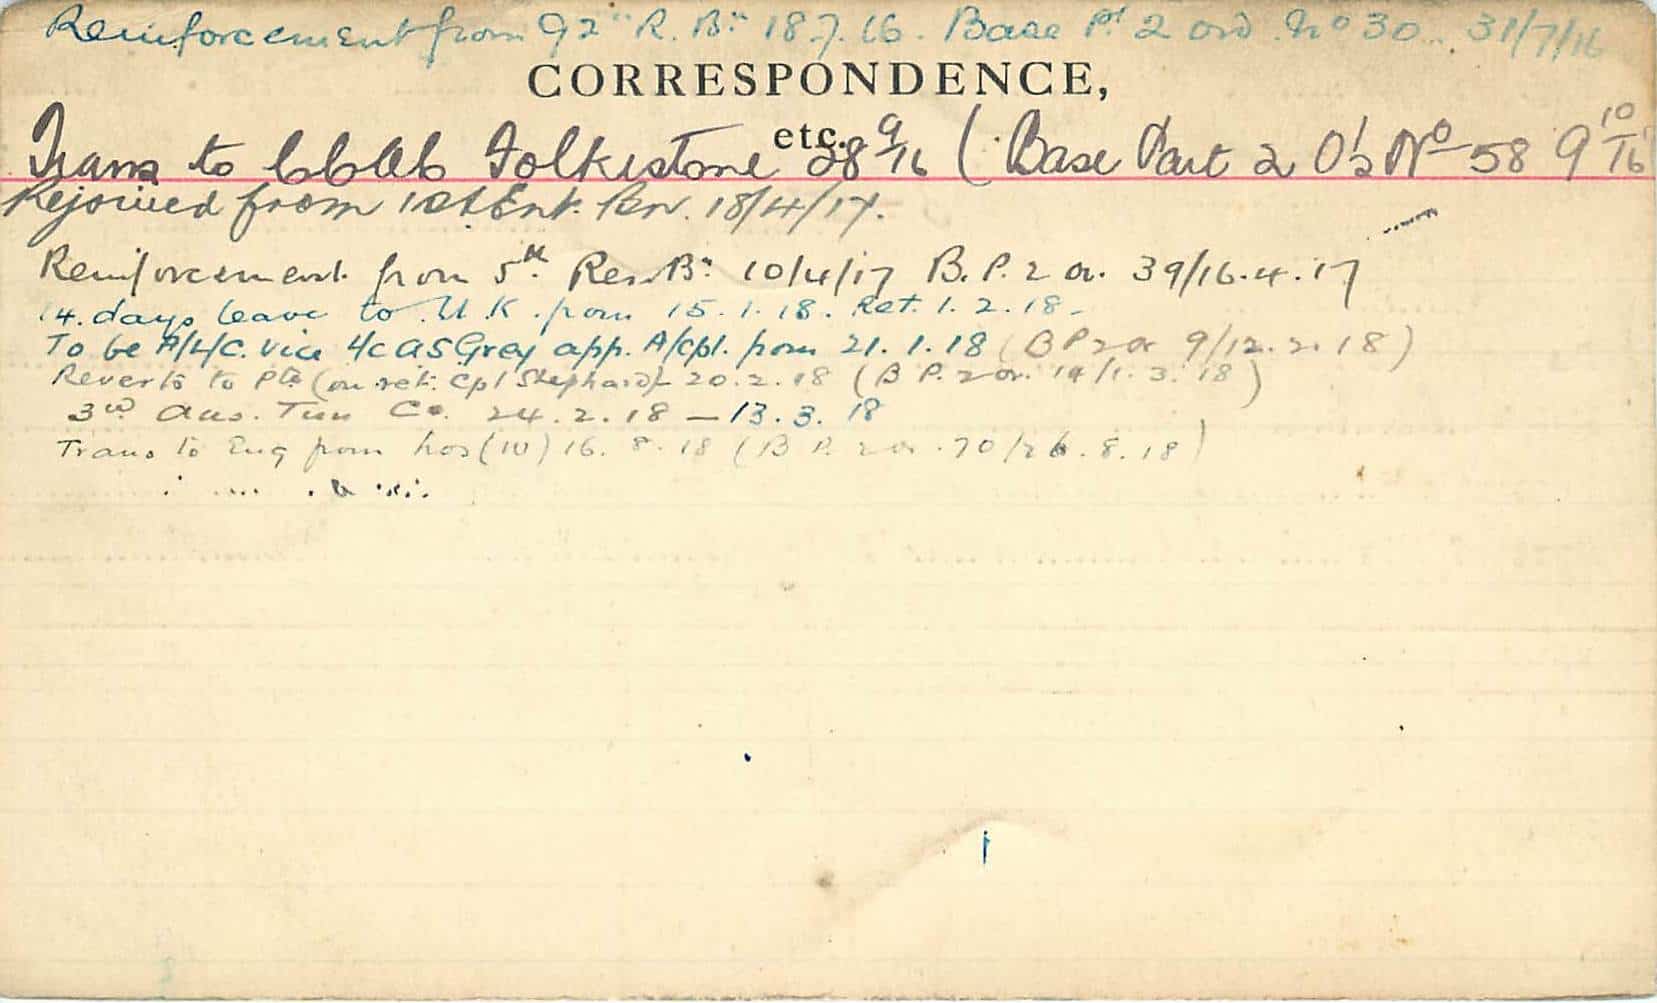 Reinforcement from 92ⁿ R. Bⁿ 18.7.16. Base Pt 2 ord. No 30. 31/7/16
CORRESPONDENCE,
etc.
Trans to CCAC Folkestone 28 9/16 (Base Part 2 O's No 58 9 10/16
Rejoined from 1st Ent. Bn. 18/4/17.
Reinforcement from 5th Res. Bn 10/4/17 B.P. 2 or. 39/16.4.17
14. days leave to U.K. from 15.1.18. Ret. 1.2.18.
To be A/L/C. vice L/C AS Grey app. A/Cpl. from 21.1.18 (B P 2 or 9/12.2.18)
Reverts to Pte (on ret. Cpl Shephard) 20.2.18 (B P. 2 or. 14/1.3.18)
3rd Aus. Tun Co. 24.2.18 — 13.3.18
Trans to Eng from hos (10) 16.8.18 (B P. 2 or. 70/26.8.18)